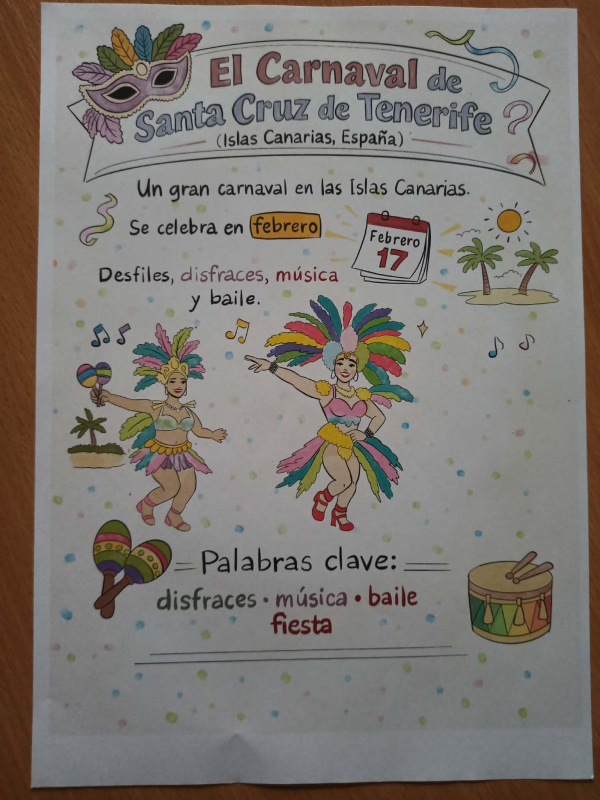 El Carnaval de
Santa Cruz de Tenerife
(Islas Canarias, España)
Un gran carnaval en las Islas Canarias.
Se celebra en febrero
Febrero
17
Desfiles, disfraces, música
y baile.
Palabras clave:
disfraces • música • baile
fiesta